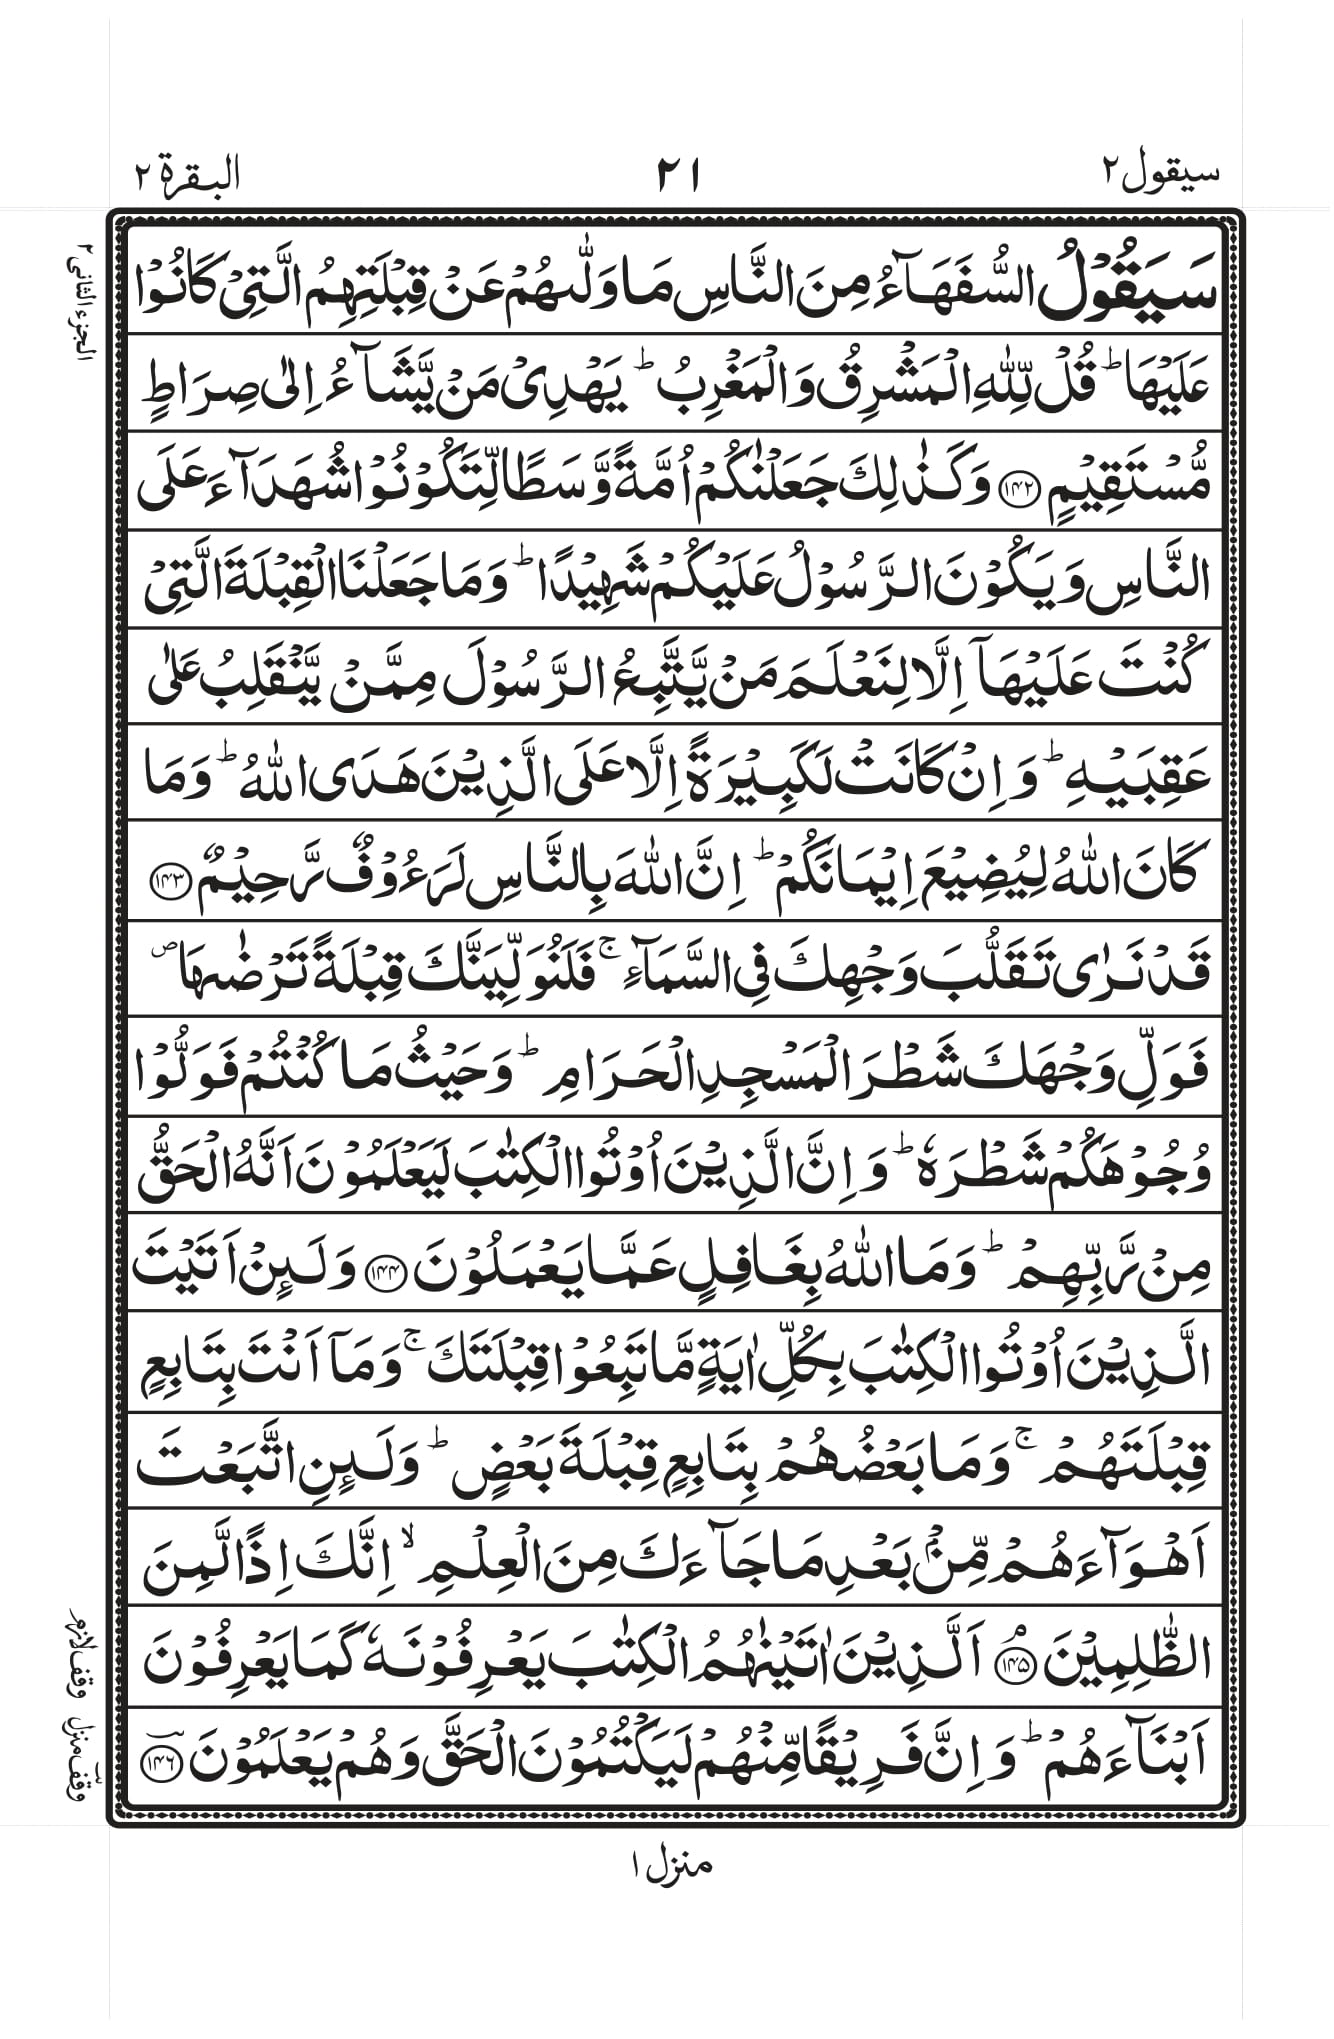 سيقول ٢
٢١
البقرة ٢
الجزء الثانى ٢
سَيَقُوۡلُ السُّفَهَآءُ مِنَ النَّاسِ مَا وَلّٰٮهُمۡ عَنۡ قِبۡلَتِهِمُ الَّتِىۡ كَانُوۡا
عَلَيۡهَا ؕ قُلۡ لِّلّٰهِ الۡمَشۡرِقُ وَالۡمَغۡرِبُ ؕ يَهۡدِىۡ مَنۡ يَّشَآءُ اِلٰى صِرَاطٍ
مُّسۡتَقِيۡمٍ ﴿۱۴۲﴾ وَكَذٰلِكَ جَعَلۡنٰكُمۡ اُمَّةً وَّسَطًا لِّتَکُوۡنُوۡا شُهَدَآءَ عَلَى
النَّاسِ وَيَكُوۡنَ الرَّسُوۡلُ عَلَيۡكُمۡ شَهِيۡدًا ؕ وَمَا جَعَلۡنَا الۡقِبۡلَةَ الَّتِىۡ
كُنۡتَ عَلَيۡهَآ اِلَّا لِنَعۡلَمَ مَنۡ يَّتَّبِعُ الرَّسُوۡلَ مِمَّنۡ يَّنۡقَلِبُ عَلٰى
عَقِبَيۡهِ ؕ وَاِنۡ كَانَتۡ لَكَبِيۡرَةً اِلَّا عَلَى الَّذِيۡنَ هَدَى اللّٰهُ ؕ وَمَا
كَانَ اللّٰهُ لِيُضِيۡعَ اِيۡمَانَكُمۡ ؕ اِنَّ اللّٰهَ بِالنَّاسِ لَرَءُوۡفٌ رَّحِيۡمٌ ﴿۱۴۳﴾
قَدۡ نَرٰى تَقَلُّبَ وَجۡهِكَ فِى السَّمَآءِ ۚ فَلَنُوَلِّيَنَّكَ قِبۡلَةً تَرۡضٰٮهَا ص
فَوَلِّ وَجۡهَكَ شَطۡرَ الۡمَسۡجِدِ الۡحَرَامِ ؕ وَحَيۡثُ مَا كُنۡتُمۡ فَوَلُّوۡا
وُجُوۡهَكُمۡ شَطۡرَهٗ ؕ وَاِنَّ الَّذِيۡنَ اُوۡتُوا الۡكِتٰبَ لَيَعۡلَمُوۡنَ اَنَّهُ الۡحَقُّ
مِنۡ رَّبِّهِمۡ ؕ وَمَا اللّٰهُ بِغَافِلٍ عَمَّا يَعۡمَلُوۡنَ ﴿۱۴۴﴾ وَلَٮِٕنۡ اَتَيۡتَ
الَّذِيۡنَ اُوۡتُوا الۡكِتٰبَ بِكُلِّ اٰيَةٍ مَّا تَبِعُوۡا قِبۡلَتَكَ ۚ وَمَآ اَنۡتَ بِتَابِعٍ
قِبۡلَتَهُمۡ ۚ وَمَا بَعۡضُهُمۡ بِتَابِعٍ قِبۡلَةَ بَعۡضٍ ؕ وَلَٮِٕنِ اتَّبَعۡتَ
اَهۡوَآءَهُمۡ مِّنۡۢ بَعۡدِ مَا جَآءَكَ مِنَ الۡعِلۡمِ ۙ اِنَّكَ اِذًا لَّمِنَ
الظّٰلِمِيۡنَ ۘ ﴿۱۴۵﴾ اَلَّذِيۡنَ اٰتَيۡنٰهُمُ الۡكِتٰبَ يَعۡرِفُوۡنَهٗ كَمَا يَعۡرِفُوۡنَ
وقف لازم
اَبۡنَآءَهُمۡ ؕ وَاِنَّ فَرِيۡقًا مِّنۡهُمۡ لَيَكۡتُمُوۡنَ الۡحَقَّ وَهُمۡ يَعۡلَمُوۡنَ ﴿۱۴۶﴾
وقف منزل
منزل ١